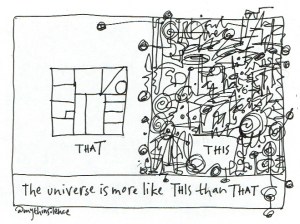 THAT
THIS
the universe is more like THIS than THAT